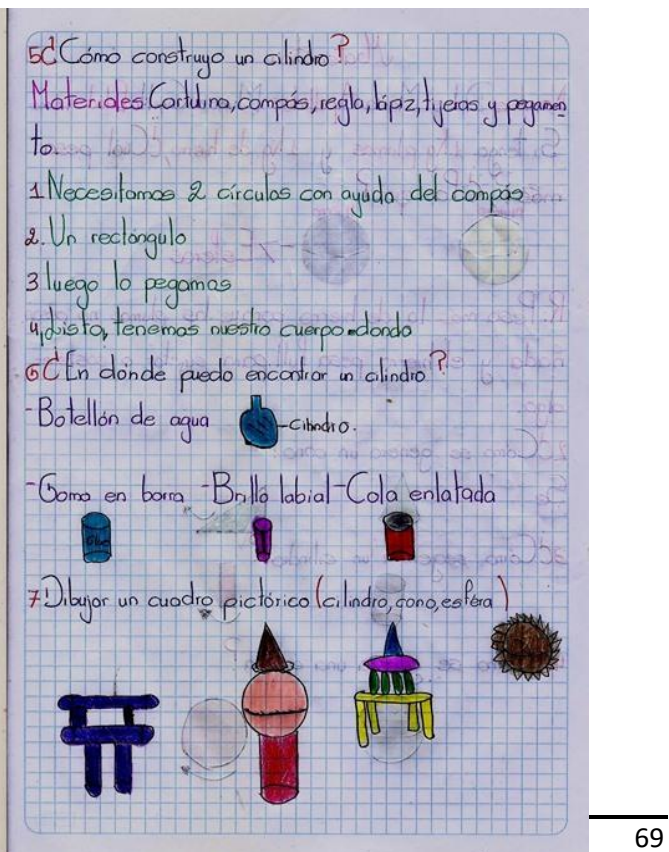 5¿Cómo construyo un cilindro?
Materiales Cartulina, compás, regla, lápiz, tijeras y pegamen
to.
1 Necesitamos 2 círculos con ayuda del compás
2. Un rectángulo
3 luego lo pegamos
4, Listo, tenemos nuestro cuerpo redondo
6¿En dónde puedo encontrar un cilindro?
-Botellón de agua -Cilindro.
-Goma en barra -Brillo labial -Cola enlatada
Glue
7 Dibujar un cuadro pictórico (cilindro, cono, esfera)
69